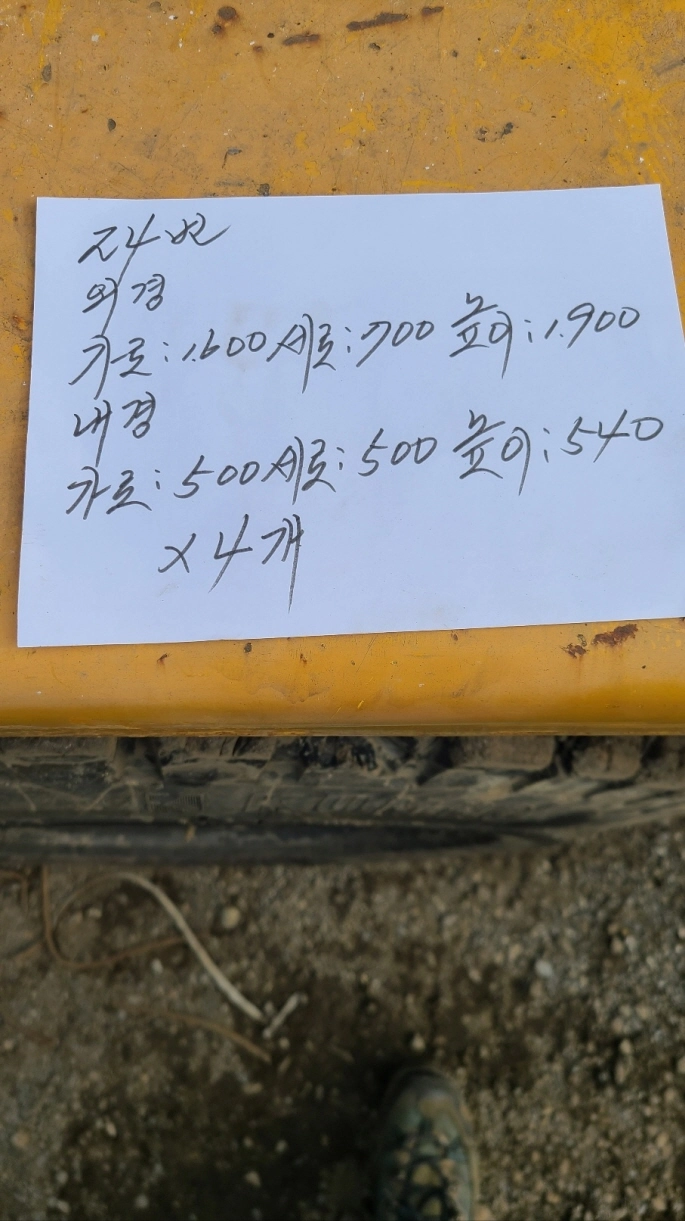 외경
가로:1.600 세로:700 높이:1.900
내경
가로:500 세로:500 높이:540
x 4개